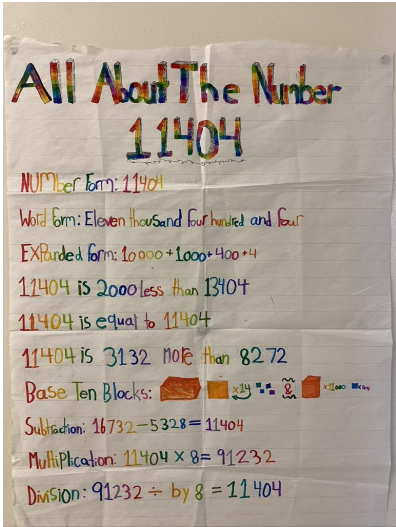 All About The Number
11404
Number Form: 11404
Word form: Eleven thousand four hundred and four
EXPanded form: 10000+1000+400+4
11404 is 2000 less than 13404
11404 is equal to 11404
11404 is 3132 more than 8272
Base Ten Blocks: x14 &
Subtraction: 16732-5328=11404
Multiplication: 11404 x 8=91232
Division: 91232 ÷ by 8 = 11404